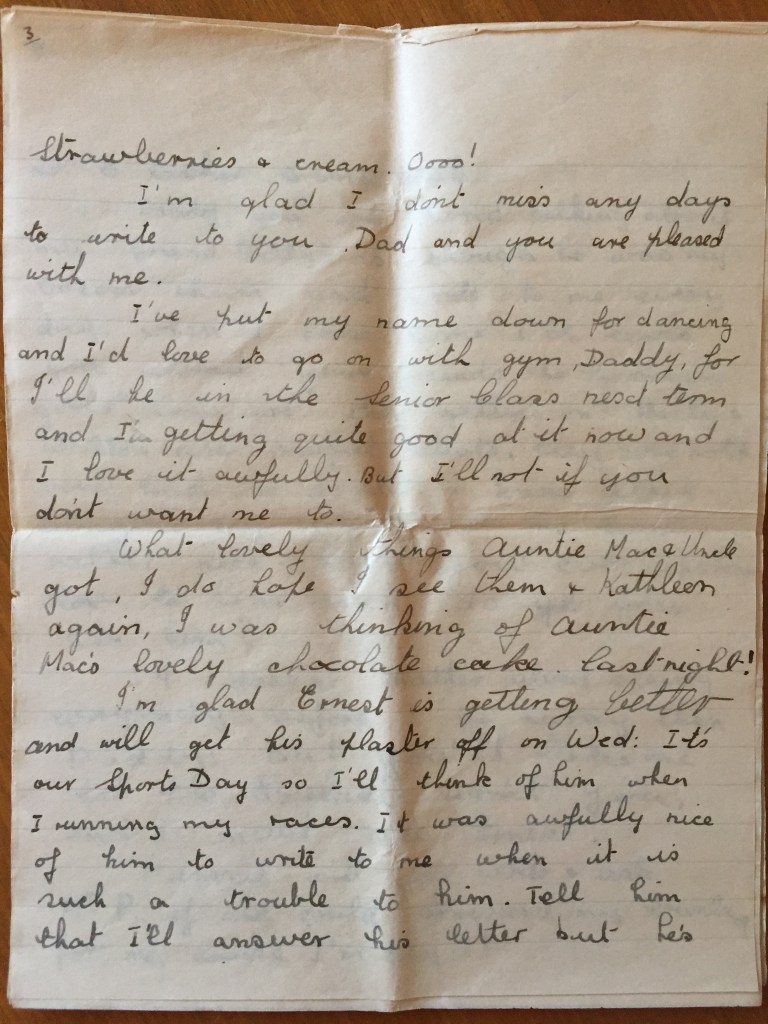 3
Strawberries & cream. Oooo!
I'm glad I don't miss any days
to write to you, Dad and you are pleased
with me.
I've put my name down for dancing
and I'd love to go on with gym, Daddy, for
I'll be in the Senior Class next term
and I'm getting quite good at it now and
I love it awfully. But I'll not if you
don't want me to.
What lovely things Auntie Mac & Uncle
got, I do hope I see them & Kathleen
again, I was thinking of Auntie
Mac's lovely chocolate cake. last night!
I'm glad Ernest is getting better
and will get his plaster off on Wed: It's
our Sports Day so I'll think of him when
I running my races. It was awfully nice
of him to write to me when it is
such a trouble to him. Tell him
that I'll answer his letter but he's